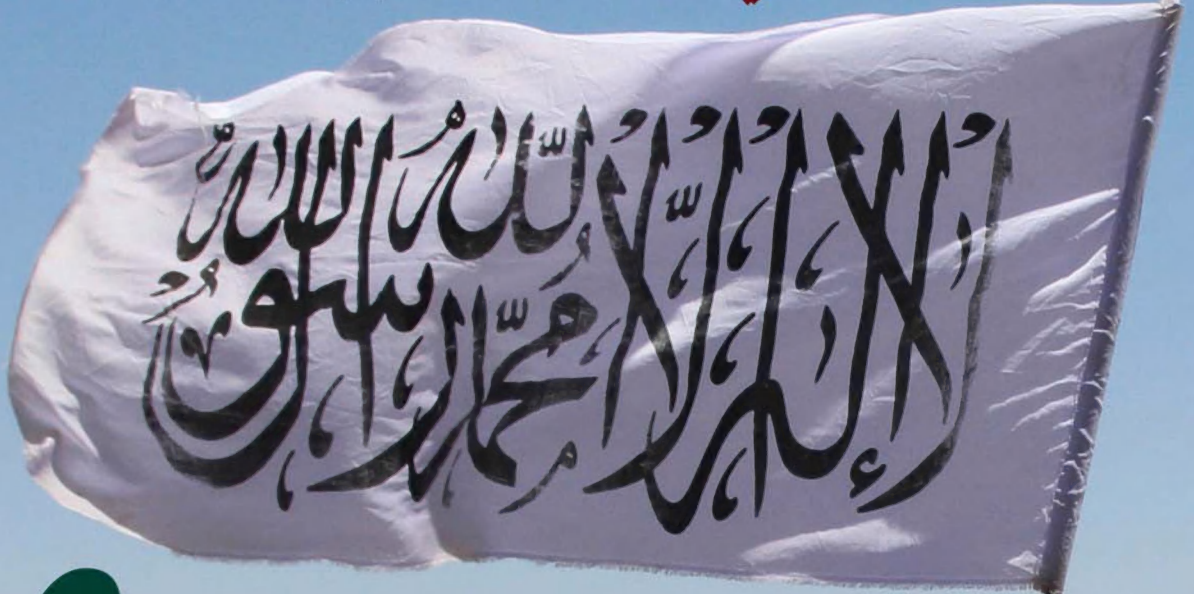 لَا إِلٰهَ إِلَّا اللّٰهُ مُحَمَّدٌ رَسُولُ اللّٰهِ